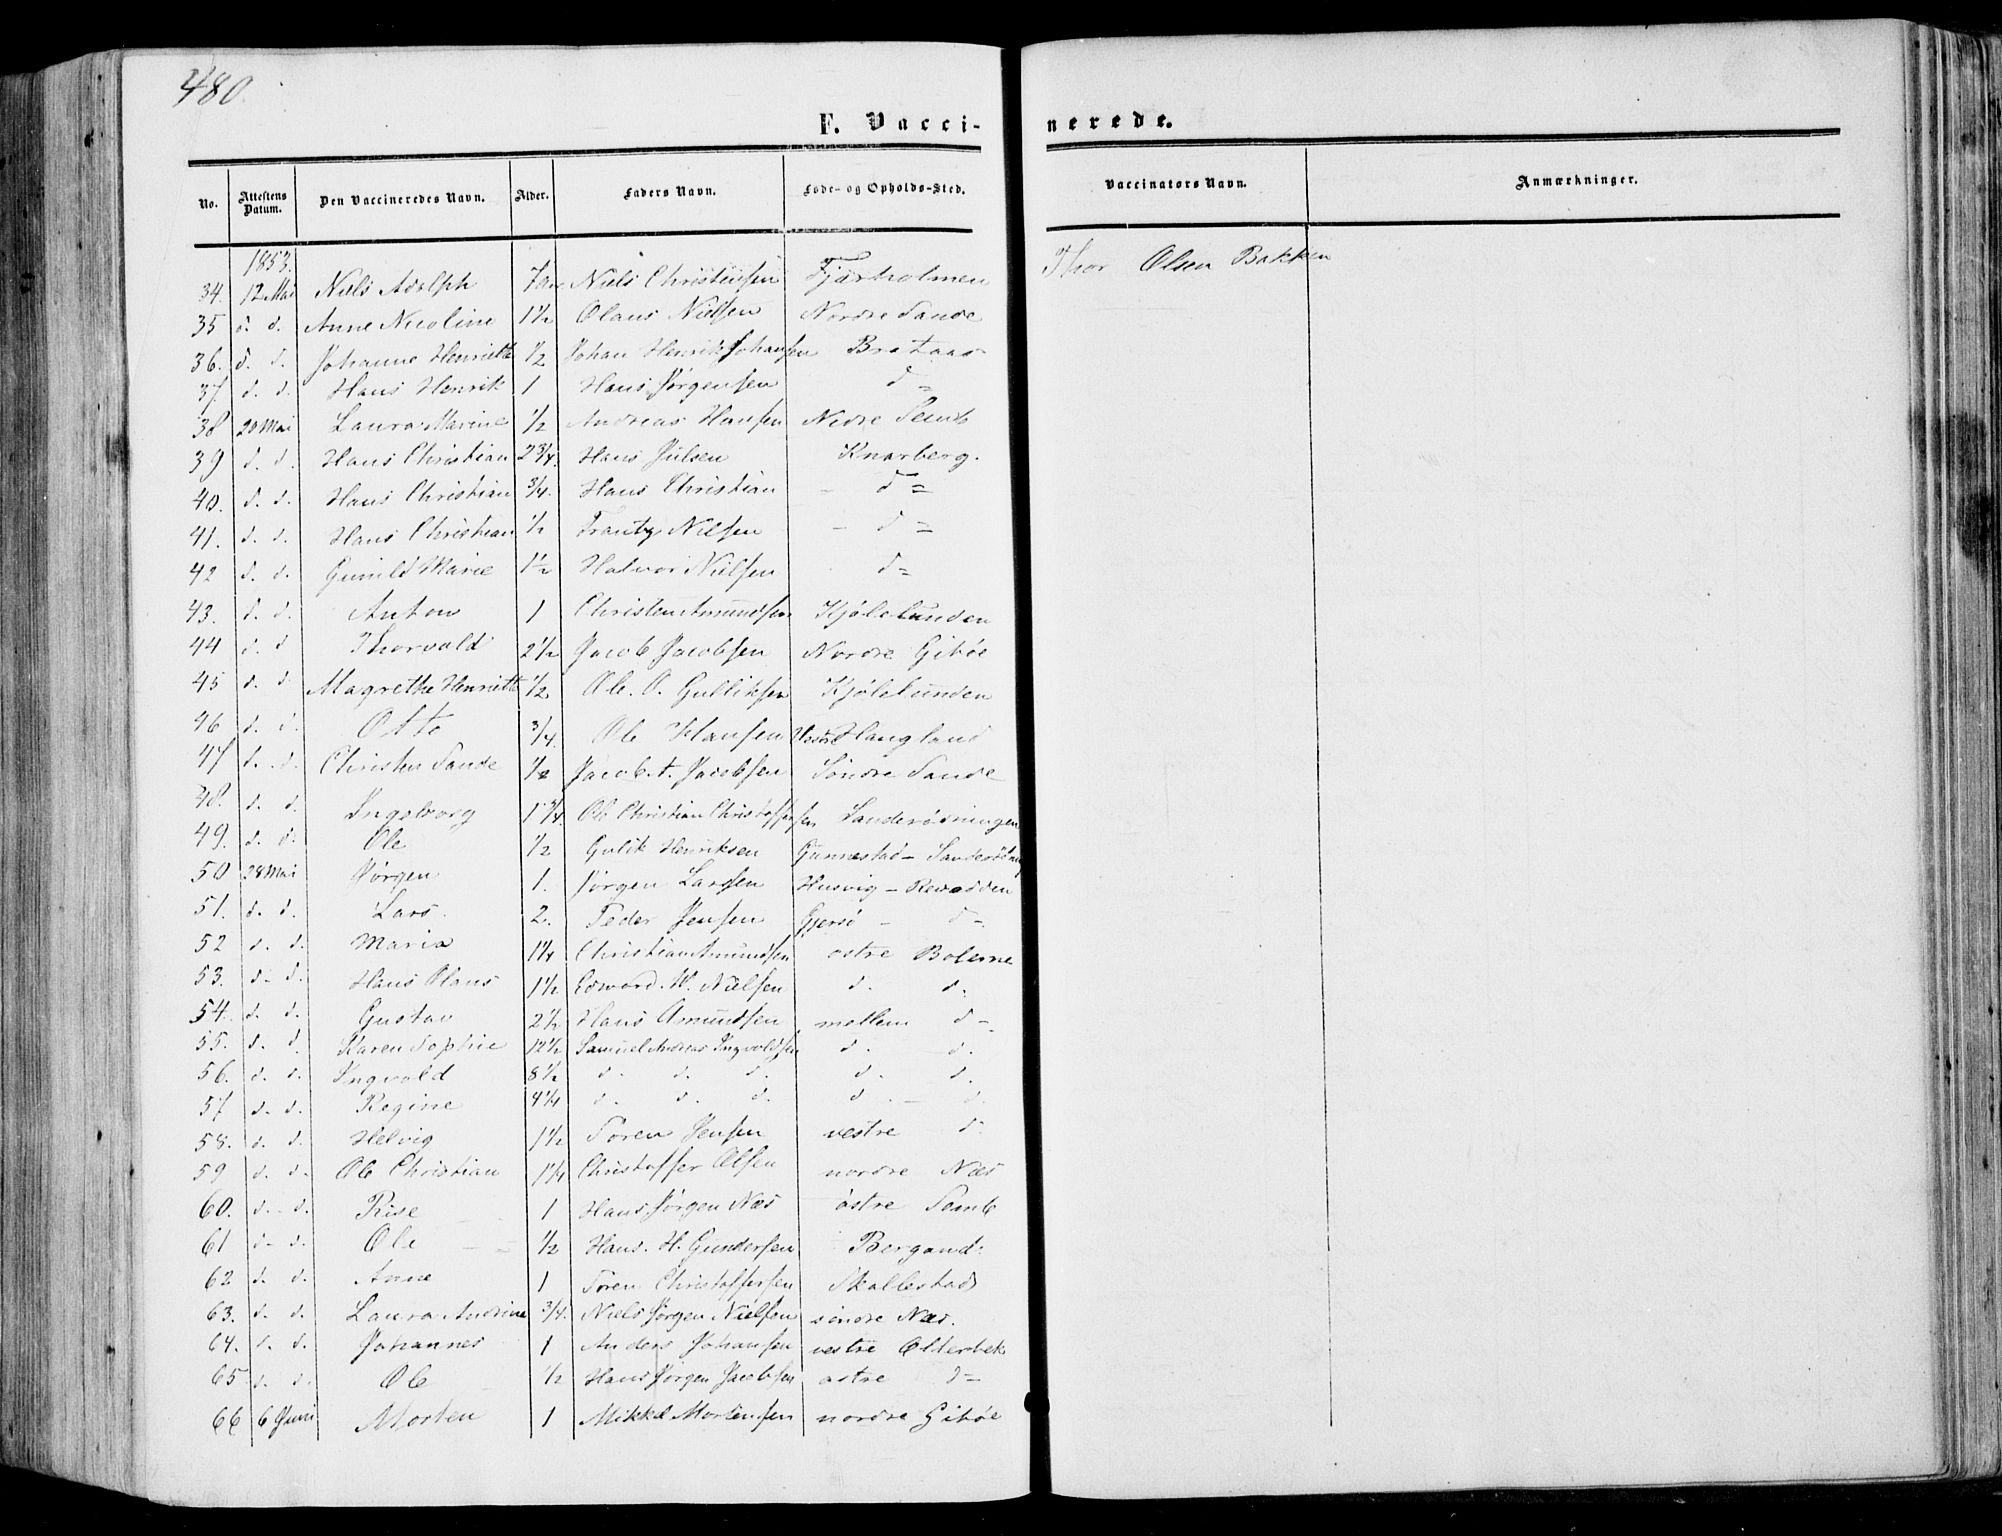 480.
F. Vaccinerede.
No. Attestens Datum. Den Vaccineredes Navn. Alder. Faders Navn. Føde- og Opholds-Sted. Vaccinators Navn. Anmærkninger.
1853.
34. 12 Mai Niels Adolph 7 Niels Christensen Fjærholmen Thor Olsen Bakken
35 d. d. Anne Nicoline 1½ Olaus Nielsen Nordre Sande
36. d. d. Johanne Henriette ½ Johan Henrik Johansen Brataas
37 d. d. Hans Henrik 1 Hans Jørgensen d=
38 20 Mai Laura Marine ½ Andreas Hansen Nedre Semb
39 d. d. Hans Christian 2¾. Hans Julsen Knarberg.
40. d. d. Hans Christian ¾. Hans Christian - d=
41. d. d. Hans Christian ½ Frantz Nilsen - d=
42 d. d. Gunild Marie 1½ Halvor Nielsen d=
43. d. d. Anton 1 Christen Amundsen Kjølelunden
44 d. d Thorvald 2½ Jacob Jacobsen Nordre Gibøe
45 d. d. Magrethe Henriette ½ Ole. O. Gulliksen Kjølelunden
46 d. d. Otto ¾. Ole Hansen Vestre Haugland
47 d. d. Christen Sande ½ Jacob A. Jacobsen Søndre Sande
48. d. d. Ingeborg 1¾. Ole Christian Christoffersen Sanderødningen
49. d. d. Ole ½ Gulik Henriksen Gunnestad-
50 28 Mai Jørgen 1. Jørgen Larssen Husvig -
51. d. d. Lars. 2. Peder Jensen Gjersø - d-
52 d. d. Maria 1¼ Christian Amundsen østre Bolerne
53. d. d. Hans Olaus 1½ Edward. W. Nielsen d. d.
54. d. d. Gustav 2½ Hans Amundsen mellem d-
55. d. d. Karen Sophie 12½ Samuel Andreas Ingvoldsen d. d.
56. d. d. Ingvald 8½ d. d. d. d. d.
57 d. d. Regine 4¼ d. d. d. d. - d.
58. d. d. Helvig 1½ Søren Jensen vestre d.
59 d. d. Ole Christian 1¼ Christoffer Olsen nordre Næs
60. d. d. Rise 1 Hans Jørgen Næs østre Semb
61 d. d. Ole ½ Hans. H. Gundersen Bergand:
62 d. d. Anne 1 Søren Christoffersen Skallestad
63. d. d. Laura Andrine ¾. Niels Jørgen Nielsen søndre Næs.
64. d. d. Johannes 1 Anders Johansen vestre Olderbek
65 d. d. Ole ½ Hans Jørgen Jacobsen østre d=
66 6 Juni Morten 1 Mikkel Mortensen nordre Gibøe